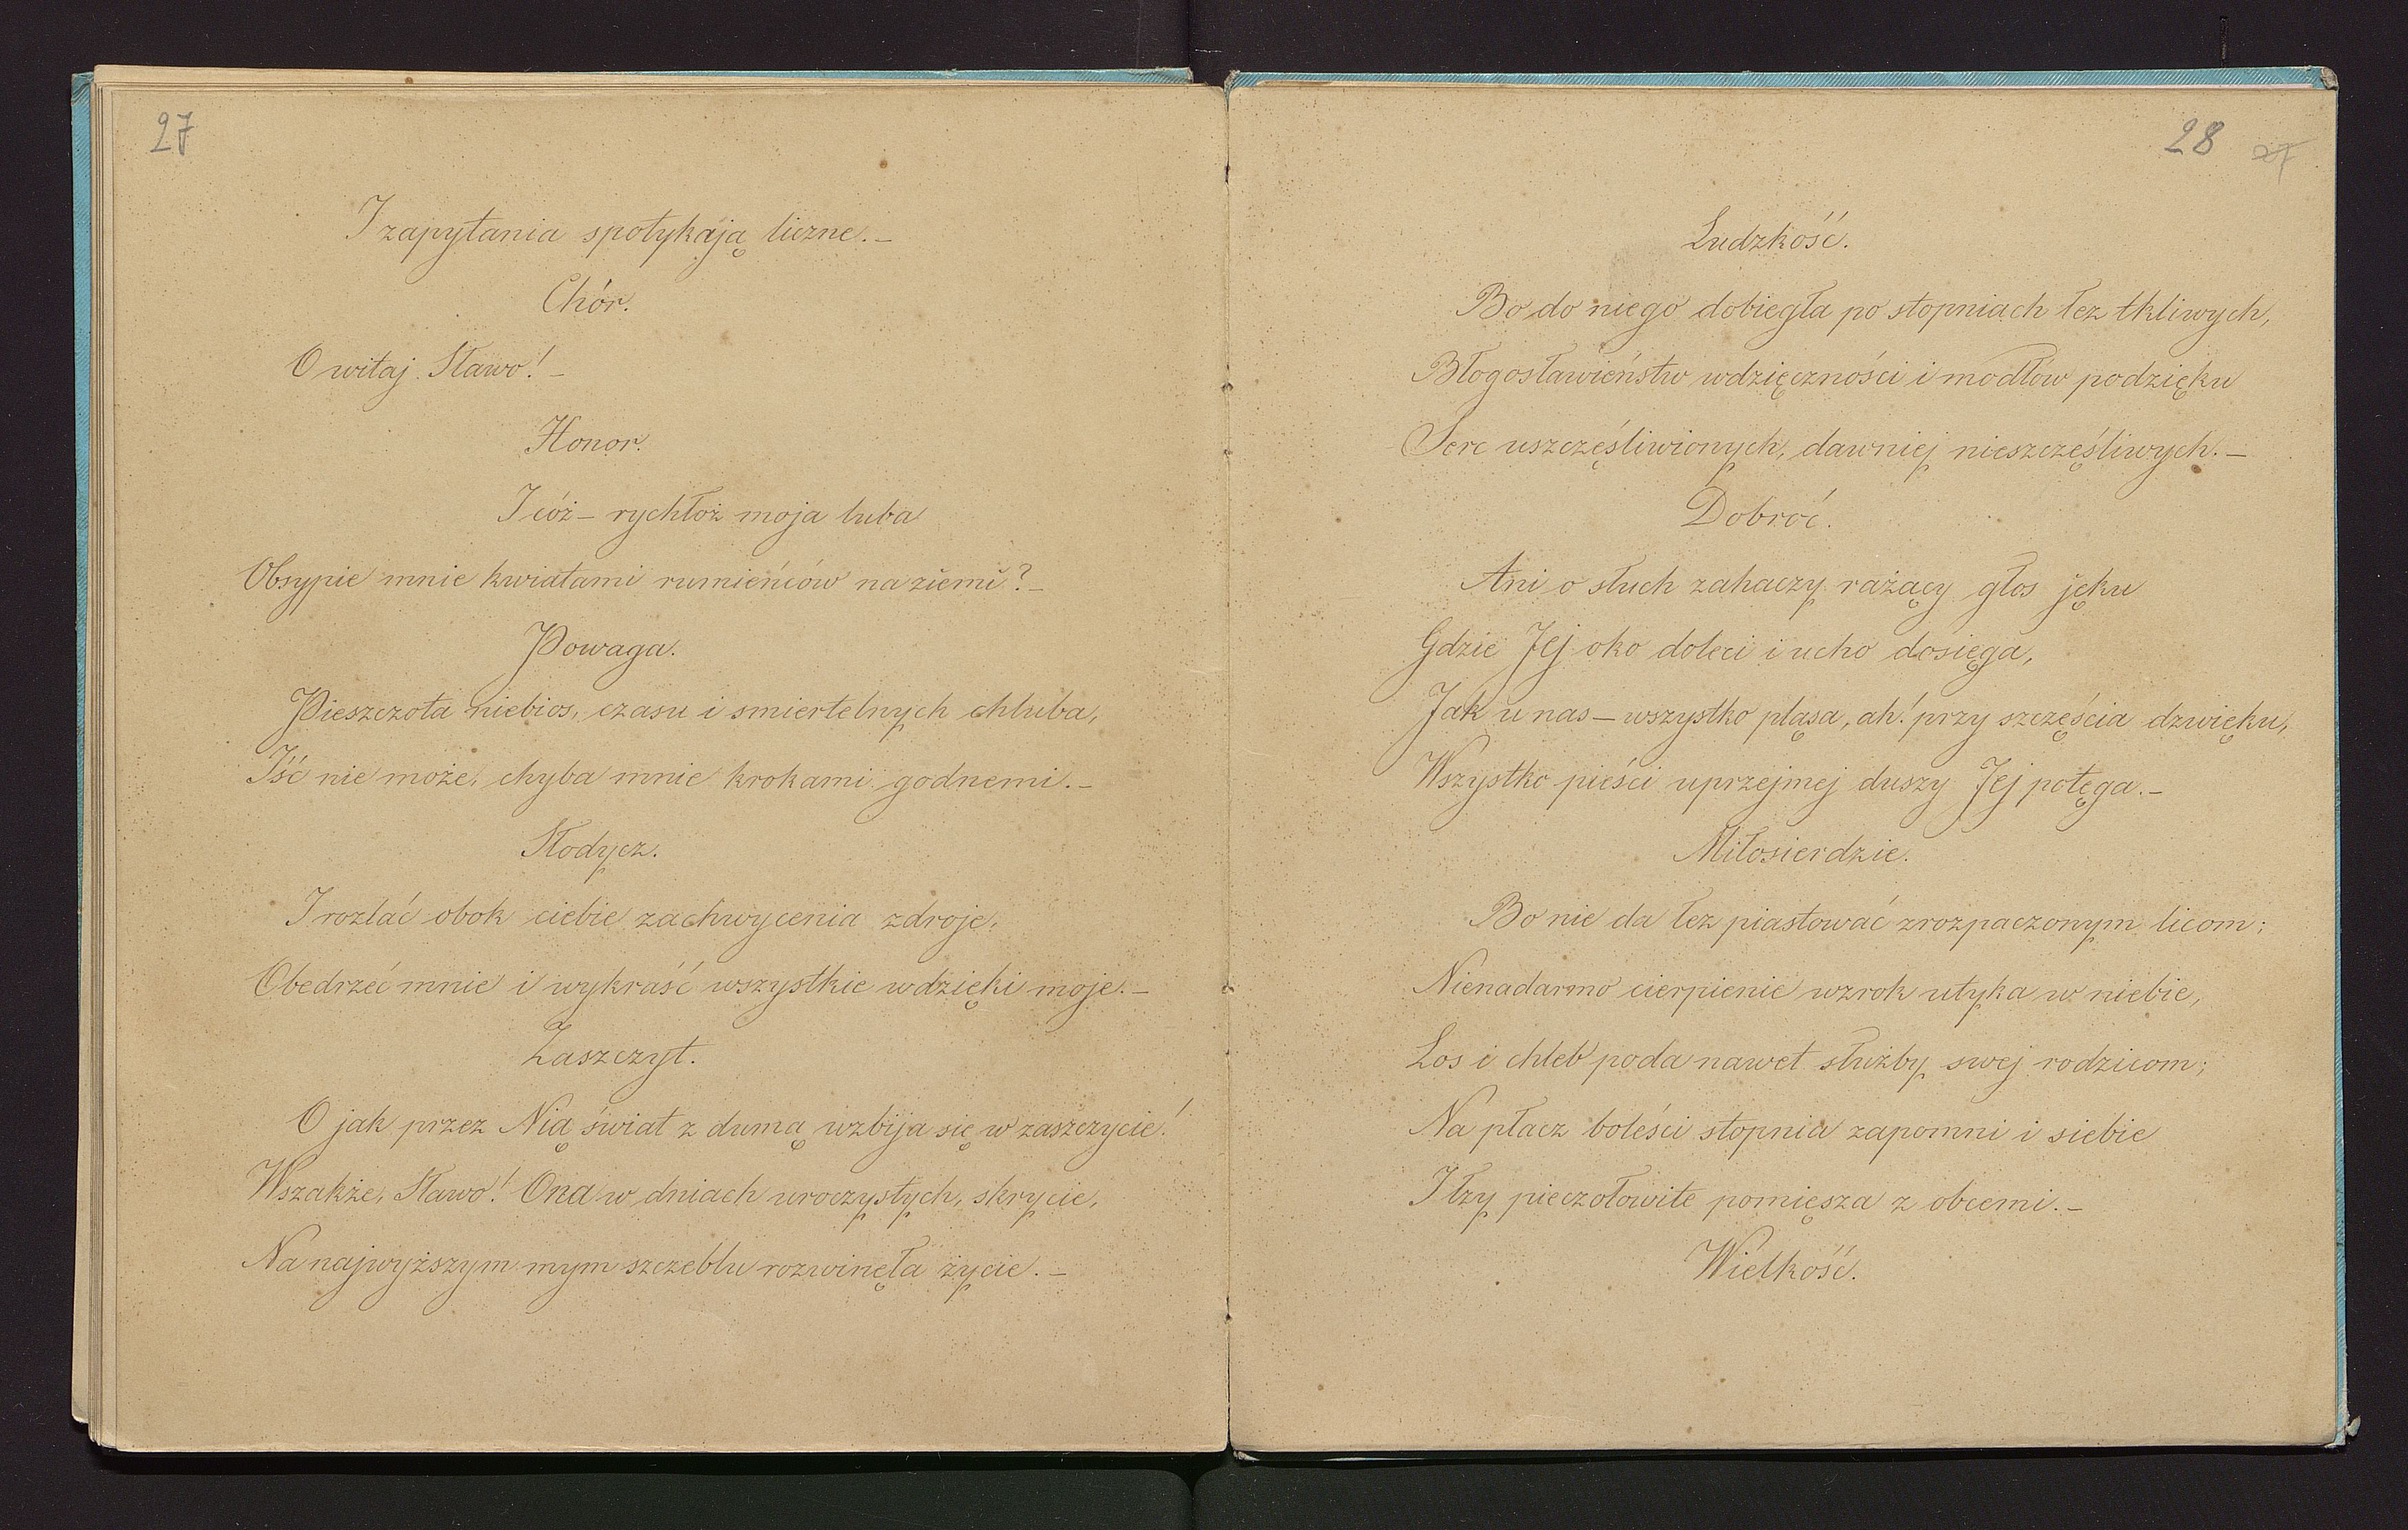 27
I zapytania spotykają liczne.–
Chór.
O witaj Sławo!–
Honor.
I cóż – rychłoż moja luba
Obsypie mnie kwiatami rumieńców na ziemi?–
Powaga.
Pieszczota niebios, czasu i smiertelnych chluba,
Iść nie może, chyba mnie krokami godnemi.–
Słodycz.
I rozlać obok ciebie zachwycenia zdroje,
Obedrzeć mnie i wykraść wszystkie wdzięki moje.–
Zaszczyt.
O jak przez Nią świat z dumą wzbija się w zaszczycie!
Wszakże, Sławo! Ona w dniach uroczystych, skrycie,
Na najwyższym mym szczeblu rozwinęła życie.–
28 27
Ludzkość.
Bo do niego dobiegła po stopniach łez tkliwych,
Błogosławieństw wdzięczności i modłów podzięku
Serc uszczęśliwionych, dawniej nieszczęśliwych.–
Dobroć.
Ani o słuch zahaczy rażący głos jęku
Gdzie Jej oko doleci i ucho dosięga,
Jak u nas – wszystko pląsa, ah! przy szczęścia dzwięku,
Wszystko pieści uprzejmej duszy Jej potęga.–
Miłosierdzie.
Bo nie da łez piastować zrozpaczonym licom;
Nienadarmo cierpienie wzrok utyka w niebie,
Los i chleb poda nawet służby swej rodzicom;
Na płacz boleści stopnia zapomni i siebie
I łzy pieczołowite pomięsza z obcemi.–
Wielkość.